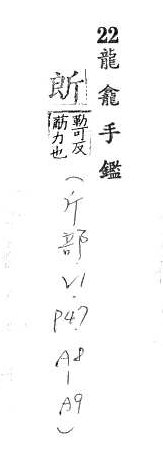 22 龍龕手鑑
勒可反
筋力也
(斤部 V1. P47. A8-A9)